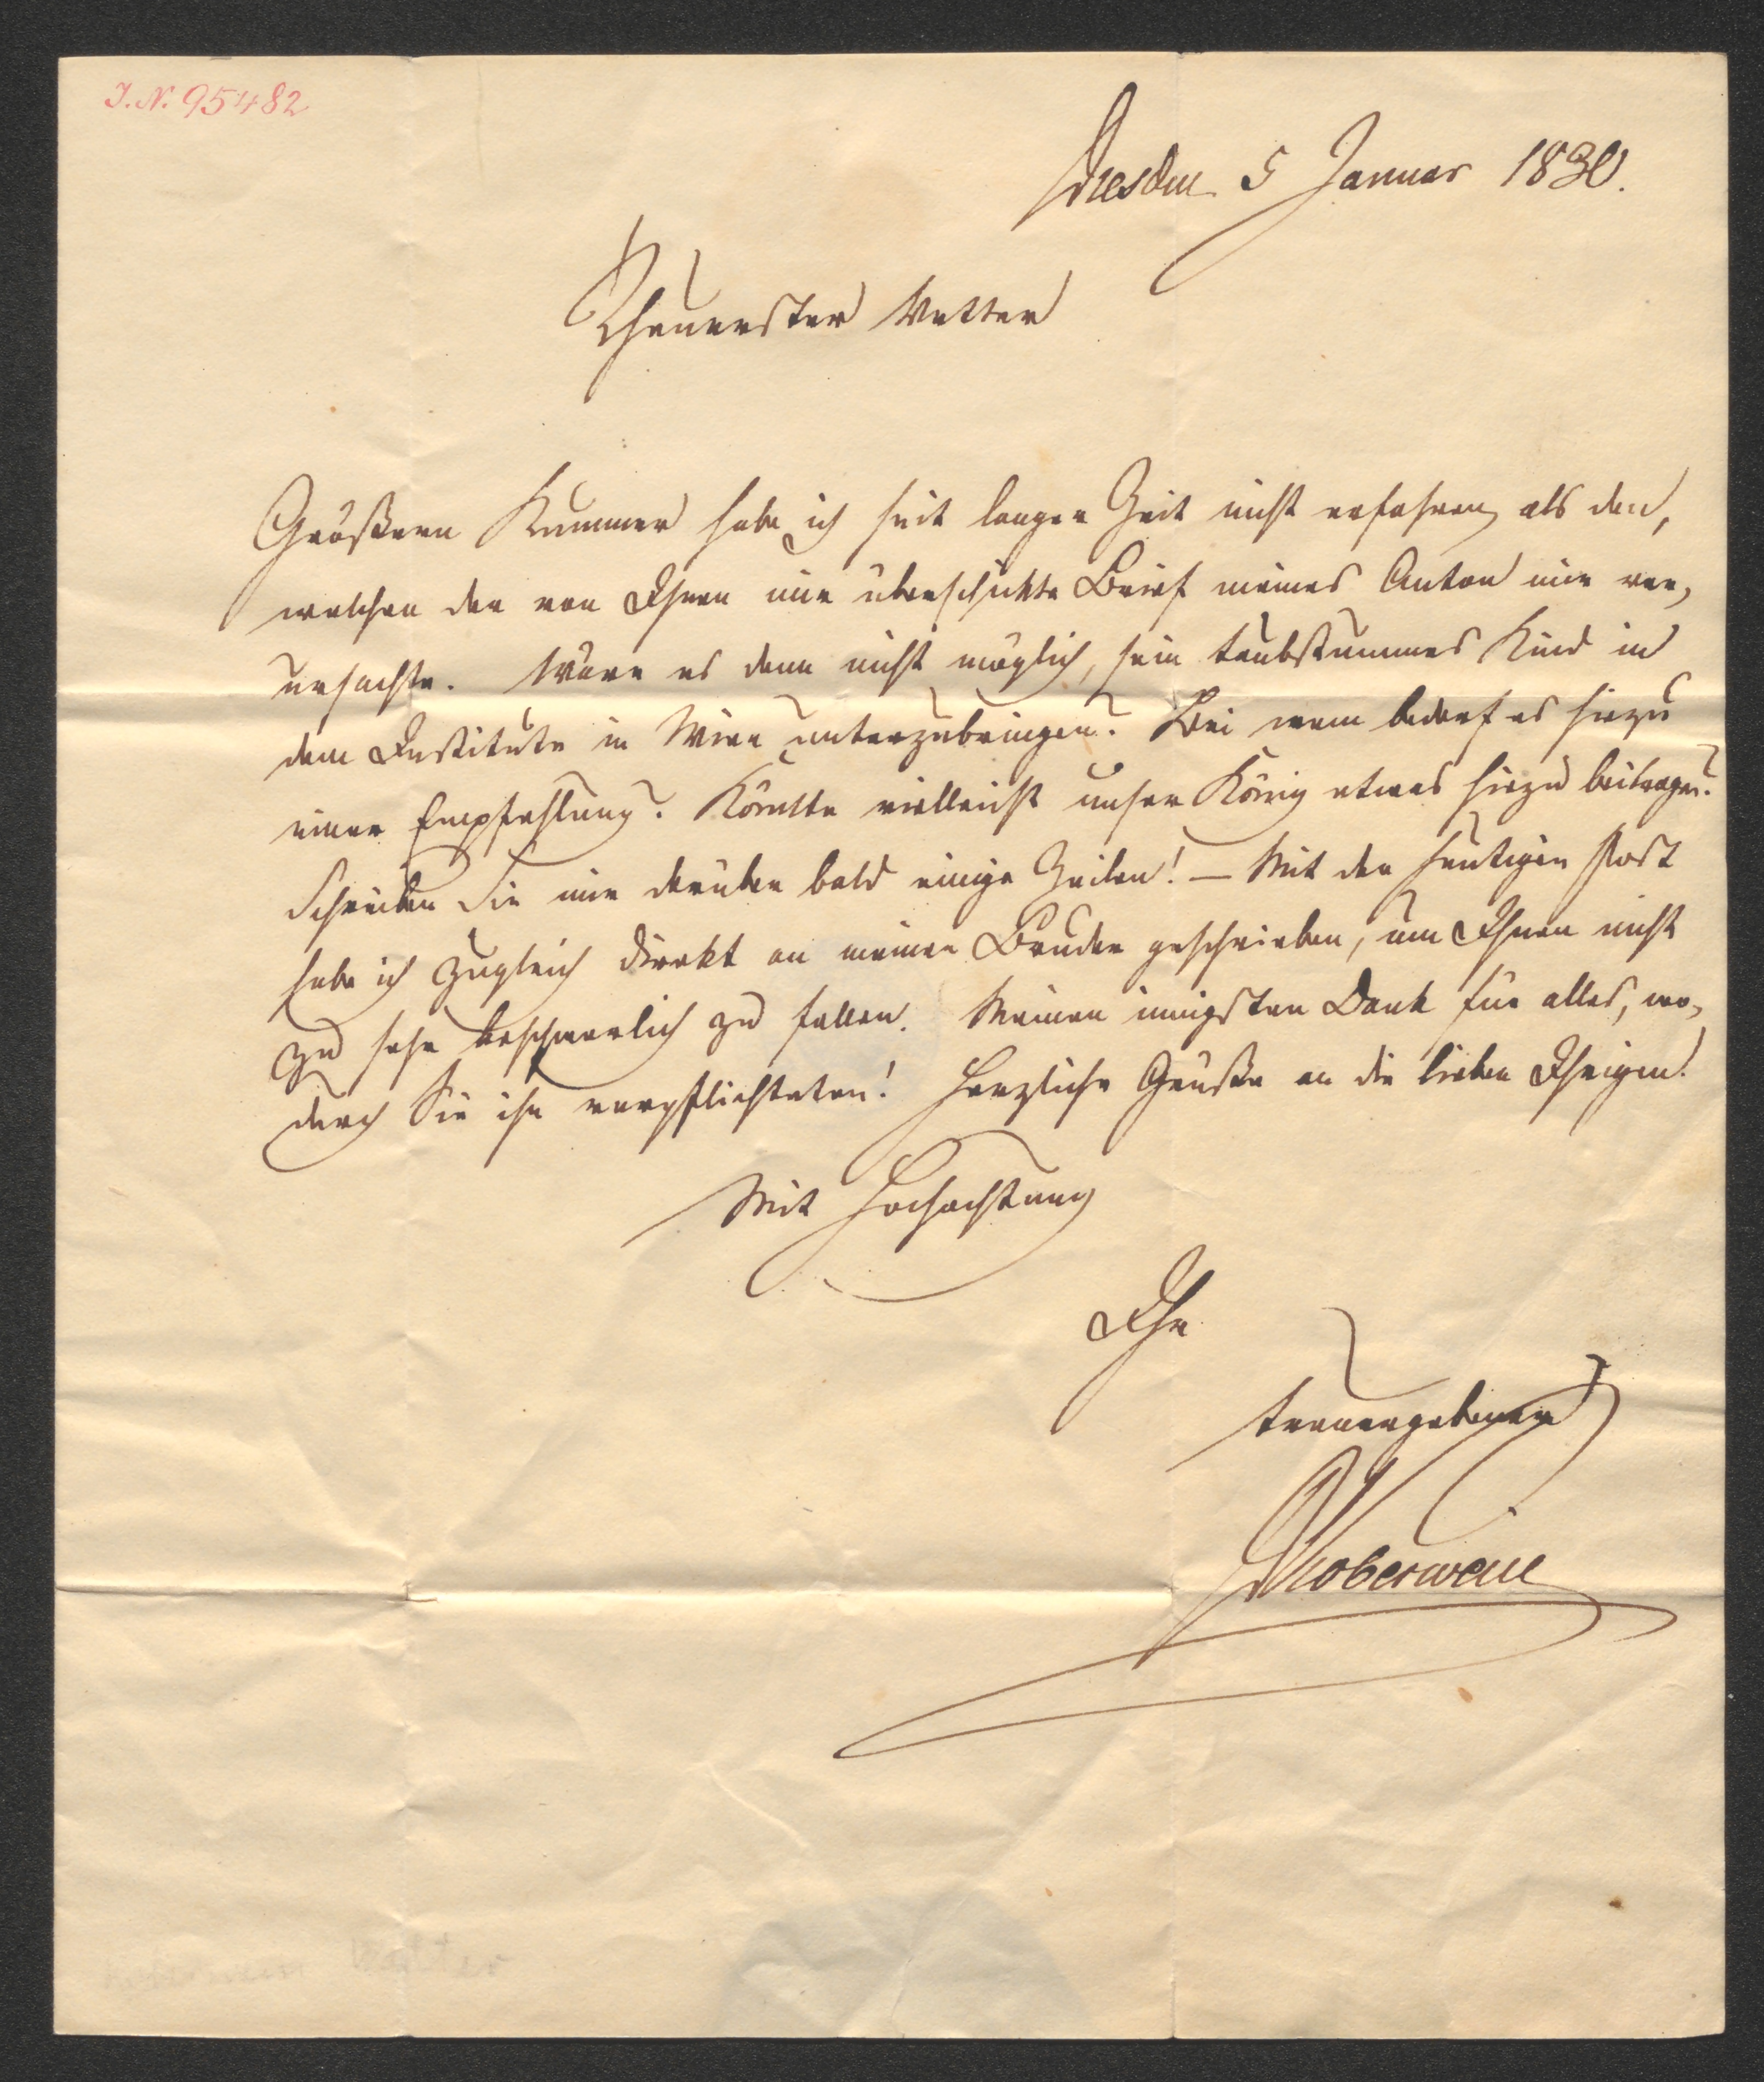 I. N. 95482
Dresden 5 Januar 1830.
Theuerster Vetter
Größern Kummer habe ich seit langer Zeit nicht erfahren, als den,
welchen der von Ihnen mir überschickte Brief meines Anton mir ver,
ursachte. Wäre es denn nicht möglich, sein taubstummes Kind in
dem Institute in Wien unterzubringen? Bei wem bedarf es hiezu
einer Empfehlung? Könnte vielleicht unser König etwas hiezu beitragen?
Schreiben Sie mir darüber bald einige Zeilen! — Mit der heutigen Post
habe ich zugleich direkt an meinen Bruder geschrieben, um Ihnen nicht
zu sehr beschwerlich zu fallen. Meinen innigsten Dank für alles, wo,
durch Sie ihn verpflichteten! Herzliche Grüße an die lieben Ihrigen.
Mit Hochachtung
Ihr
treuergebener
Koberwein